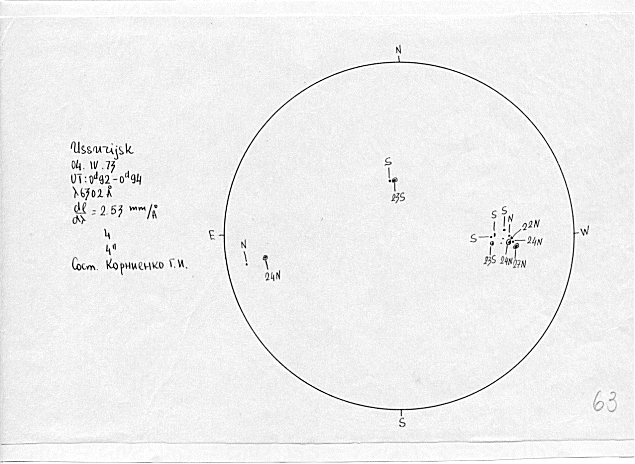 N
Ussurijsk
04. IV. 73
UT: 0ᵈ92 – 0ᵈ94
λ6302 Å
dl/dλ = 2.53 mm/Å
4
4"
Сост. Корниенко Г.И.
S
23S
E
W
N
24N
S
S
S
N
22N
24N
23S
24N
27N
S
63